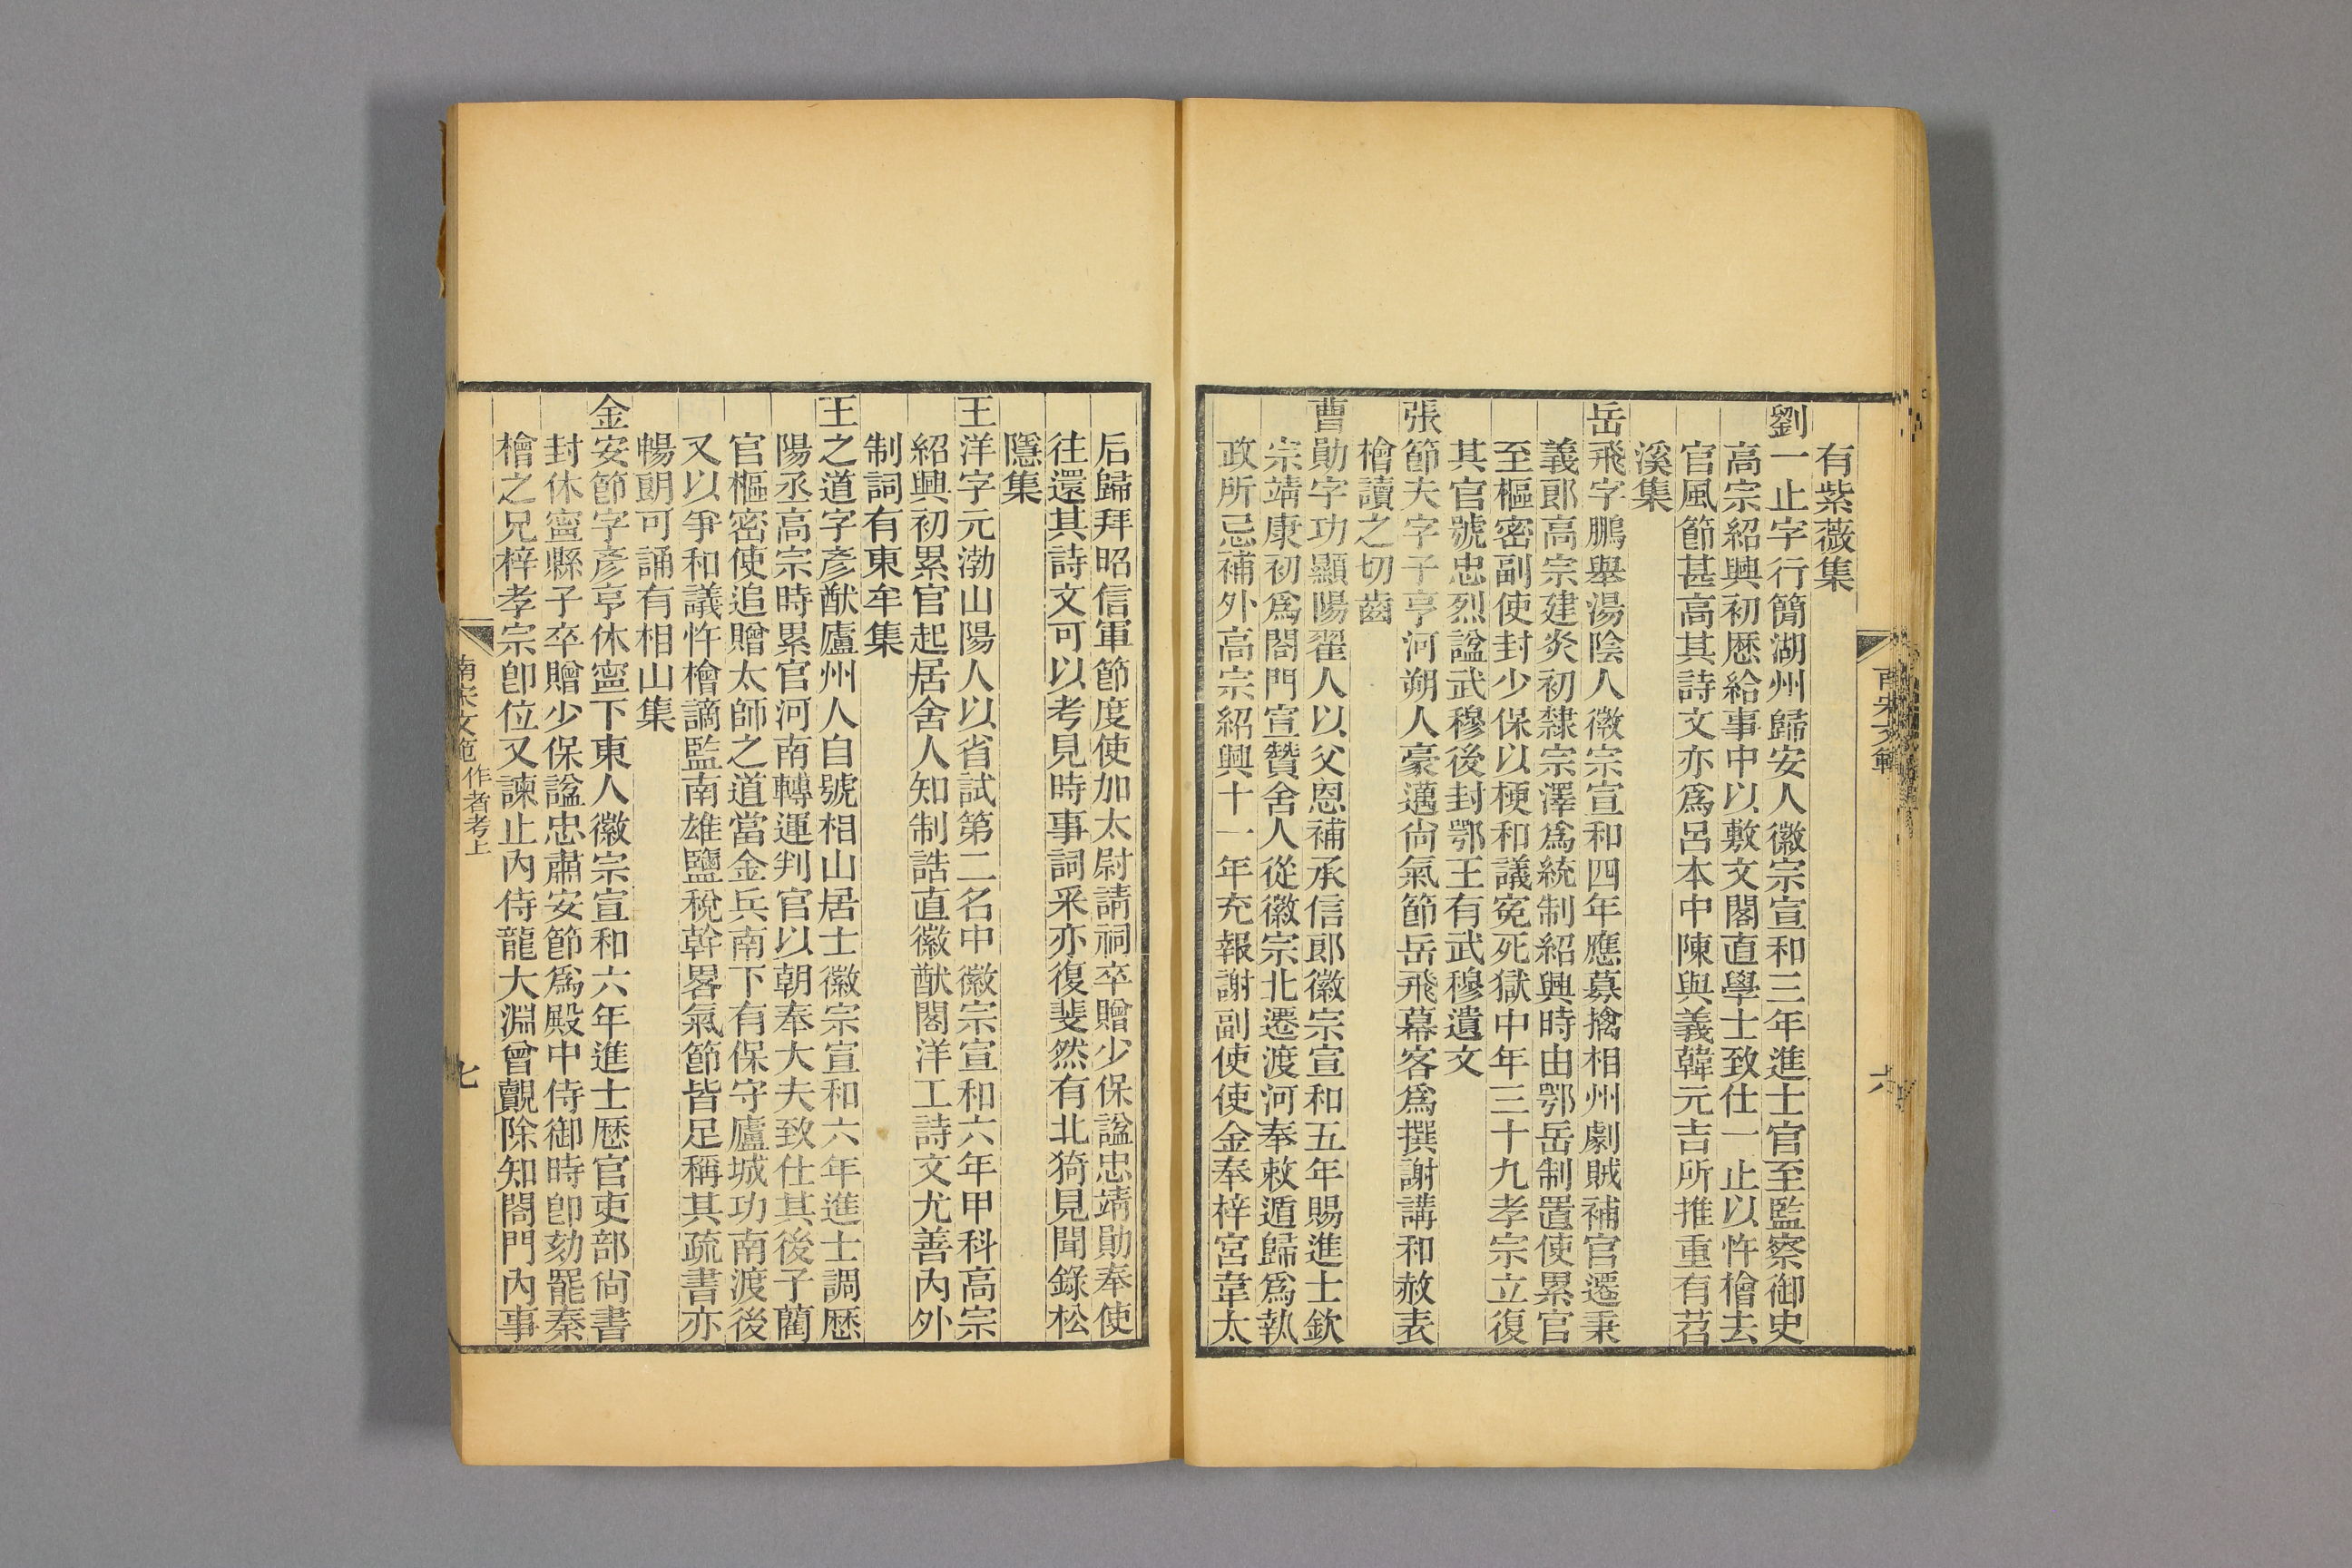 有紫薇集
劉一止字行簡湖州歸安人徽宗宣和三年進士官至監察御史
高宗紹興初歷給事中以敷文閣直學士致仕一止以忤檜去
官風節甚高其詩文亦爲呂本中陳與義韓元吉所推重有苕
溪集
岳飛字鵬舉湯陰人徽宗宣和四年應募擒相州劇賊補官遷秉
義郎高宗建炎初隸宗澤爲統制紹興時由鄂岳制置使累官
至樞密副使封少保以梗和議冤死獄中年三十九孝宗立復
其官號忠烈諡武穆後封鄂王有武穆遺文
張節夫字子亨河朔人豪邁尙氣節岳飛幕客爲撰謝講和赦表
檜讀之切齒
曹勛字功顯陽翟人以父恩補承信郎徽宗宣和五年賜進士欽
宗靖康初爲閤門宣贊舍人從徽宗北遷渡河奉敕遁歸爲執
政所忌補外高宗紹興十一年充報謝副使使金奉梓宮韋太
南宋文範
六
后歸拜昭信軍節度使加太尉請祠卒贈少保諡忠靖勛奉使
往還其詩文可以考見時事詞采亦復斐然有北狩見聞錄松
隱集
王洋字元渤山陽人以省試第二名中徽宗宣和六年甲科高宗
紹興初累官起居舍人知制誥直徽猷閣洋工詩文尤善內外
制詞有東牟集
王之道字彥猷廬州人自號相山居士徽宗宣和六年進士調歷
陽丞高宗時累官河南轉運判官以朝奉大夫致仕其後子藺
官樞密使追贈太師之道當金兵南下有保守廬城功南渡後
又以爭和議忤檜謫監南雄鹽稅幹畧氣節皆足稱其疏書亦
暢朗可誦有相山集
金安節字彥亨休寧下東人徽宗宣和六年進士歷官吏部尙書
封休寧縣子卒贈少保諡忠肅安節爲殿中侍御時卽劾罷秦
檜之兄梓孝宗卽位又諫止內侍龍大淵曾覿除知閤門內事
南宋文範 作者考上
七